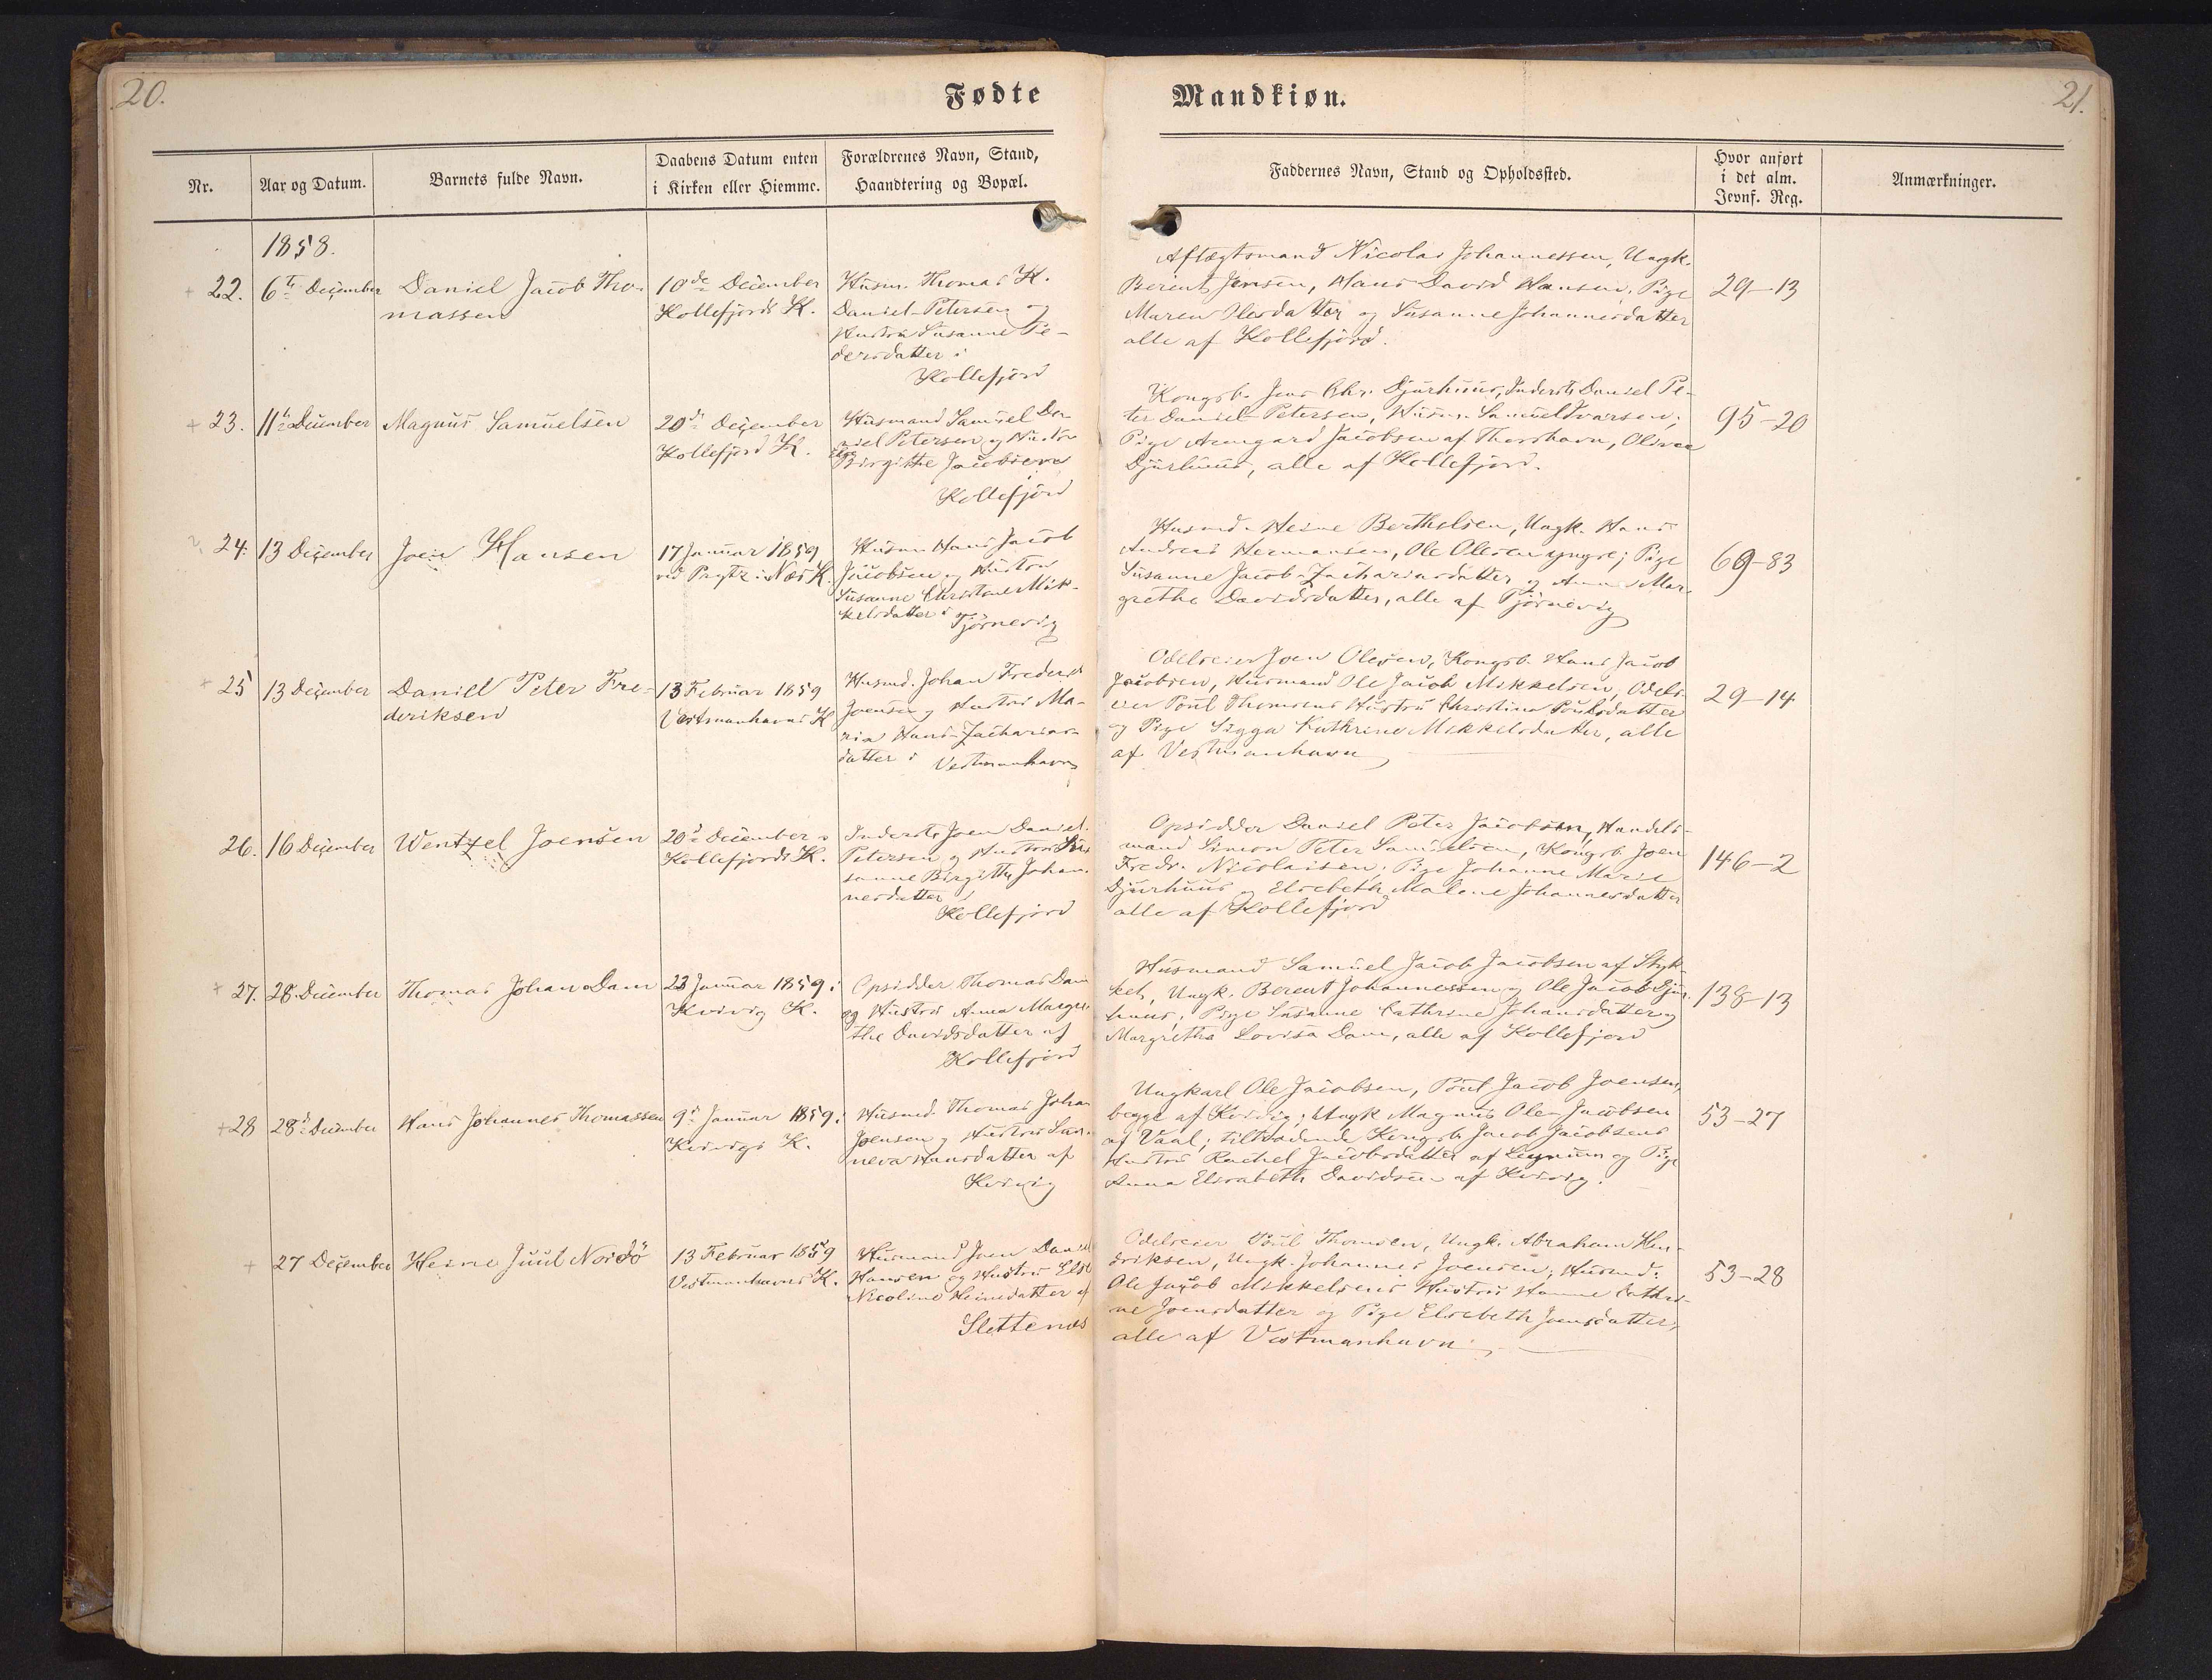 20.
Fødte
Nr.
Aar og Datum.
Barnets fulde Navn.
Daabens Datum enten
i Kirken eller Hiemme.
Forældrenes Navn, Stand,
Haandtering og Bopæl.
1858.
22.
6te December
Daniel Jacob Tho-
massen
10de December
Kollefjords K.
Husm. Thomas K.
Daniel-Petersen og
Hustru Susanne Pe-
dersdatter i
Kollefjord
+ 23.
11te December
Magnus Samuelsen
20de December
Kollefjord K.
Husmand Samuel Da-
niel Petersen og Hustru
Birgitthe Jacobsen
Kollefjord
24.
13 December
Joen Hansen
17 Januar 1859
ved Pigtz i Næs K.
Husm. Hans Jacob
Jacobsen og Hustru
Susanne Christine Mik-
kelsdatter i
Tjørnevig
+ 25
13 December
Daniel Peter Fre-
deriksen
13 Februar 1859
Vestmanhavns K
Husmd. Johan Frederik
Joensen og Hustru Ma-
ria Hans-Zacharias-
datter i
Vestmanhavn
26.
16 December
Wentzel Joensen
20de December i
Kollefjords K.
Inderste Joen Daniel-
Petersen og Hustru Su-
sanne Birgitte Johan-
nesdatter i
Kollefjord
+ 27.
28. December
Thomas Johan Dam
23 Januar 1859 i
Kvivig K.
Opsidder Thomas Dam
og Hustru Anna Margre-
the Davidsdatter af
Kollefjord
+ 28
28de December
Hans Johannes Thomassen
9de Januar 1859 i
Kvivigs K.
Husmd. Thomas Johan
Joensen og Hustru Sun-
neva Hansdatter af
Kvivig
+
27 December
Heine Juul Nordö
13 Februar 1859
Vestmanhavns K.
Husmand Joen Daniel
Hansen og Hustru Else
Nicoline Heinesdatter af
Slettenæs
Mandkiøn.
21.
Faddernes Navn, Stand og Opholdssted.
Hvor anført
i det alm.
Jevnf. Reg.
Anmærkninger.
Aftægtsmand Nicolas Johannessen, Ungk.
Berent Jensen, Hans David Hansen, Pige
Maren Olesdatter og Susanne Johannesdatter
alle af Kollefjord.
29-13
Kongsb. Jens Chr. Djurhuus, Inderste Daniel Pe-
ter Daniel-Petersen, Husm. Samuel Ivarsen;
Pige Armgard Jacobsen af Thorshavn, Olivea
Djurhuus, alle af Kollefjord.
95-20
Husmd. Heine Berthelsen, Ungk. Hans
Andreas Hermansen, Ole Olesen yngre; Pige
Susanne Jacob-Zachariasdatter og Anna Mar-
grethe Davidsdatter, alle af Tjørnevig
69-83
Odelseier Joen Olesen, Kongsb. Hans Jacob
Jacobsen, Husmand Ole Jacob Mikkelsen, Odels-
eier Poul Thomsens Hustru Christina Poulsdatter
og Pige Sigga Kathrine Mikkelsdatter, alle
af Vestmanhavn
29-14
Opsidder Daniel Peter Jacobsen, Handels-
mand Simon Peter Samuelsen, Kongsb. Joen
Fredr. Nicolaisen, Pige Johanne Marie
Djurhuus og Elsebeth Malene Johannesdatter
alle af Kollefjord
146-2
Husmand Samuel Jacob Jacobsen af Styk-
ket, Ungk. Berent Johannessen og Ole Jacob Djur-
huus, Pige Susanne Cathrine Johansdatter og
Margretha Lovisa Dam, alle af Kollefjord
138-13
Ungkarl Ole Jacobsen, Poul Jacob Joensen,
begge af Kvivig, Ungk Magnus Ole-Jacobsen
af Vaal; tilstædende Kongsb. Jacob Jacobsens
Hustru Rachel Jacobsdatter af Leynum og Pige
Anna Elisabeth Davidsen af Kvivig.
53-27
Odelseier Poul Thomsen, Ungk. Abraham Hen-
driksen, Ungk. Johannes Joensen; Husmd.
Ole Jacob Mikkelsens Hustru Hanne Cathri-
ne Joensdatter og Pige Elsebeth Joensdatter,
alle af Vestmanhavn
53-28